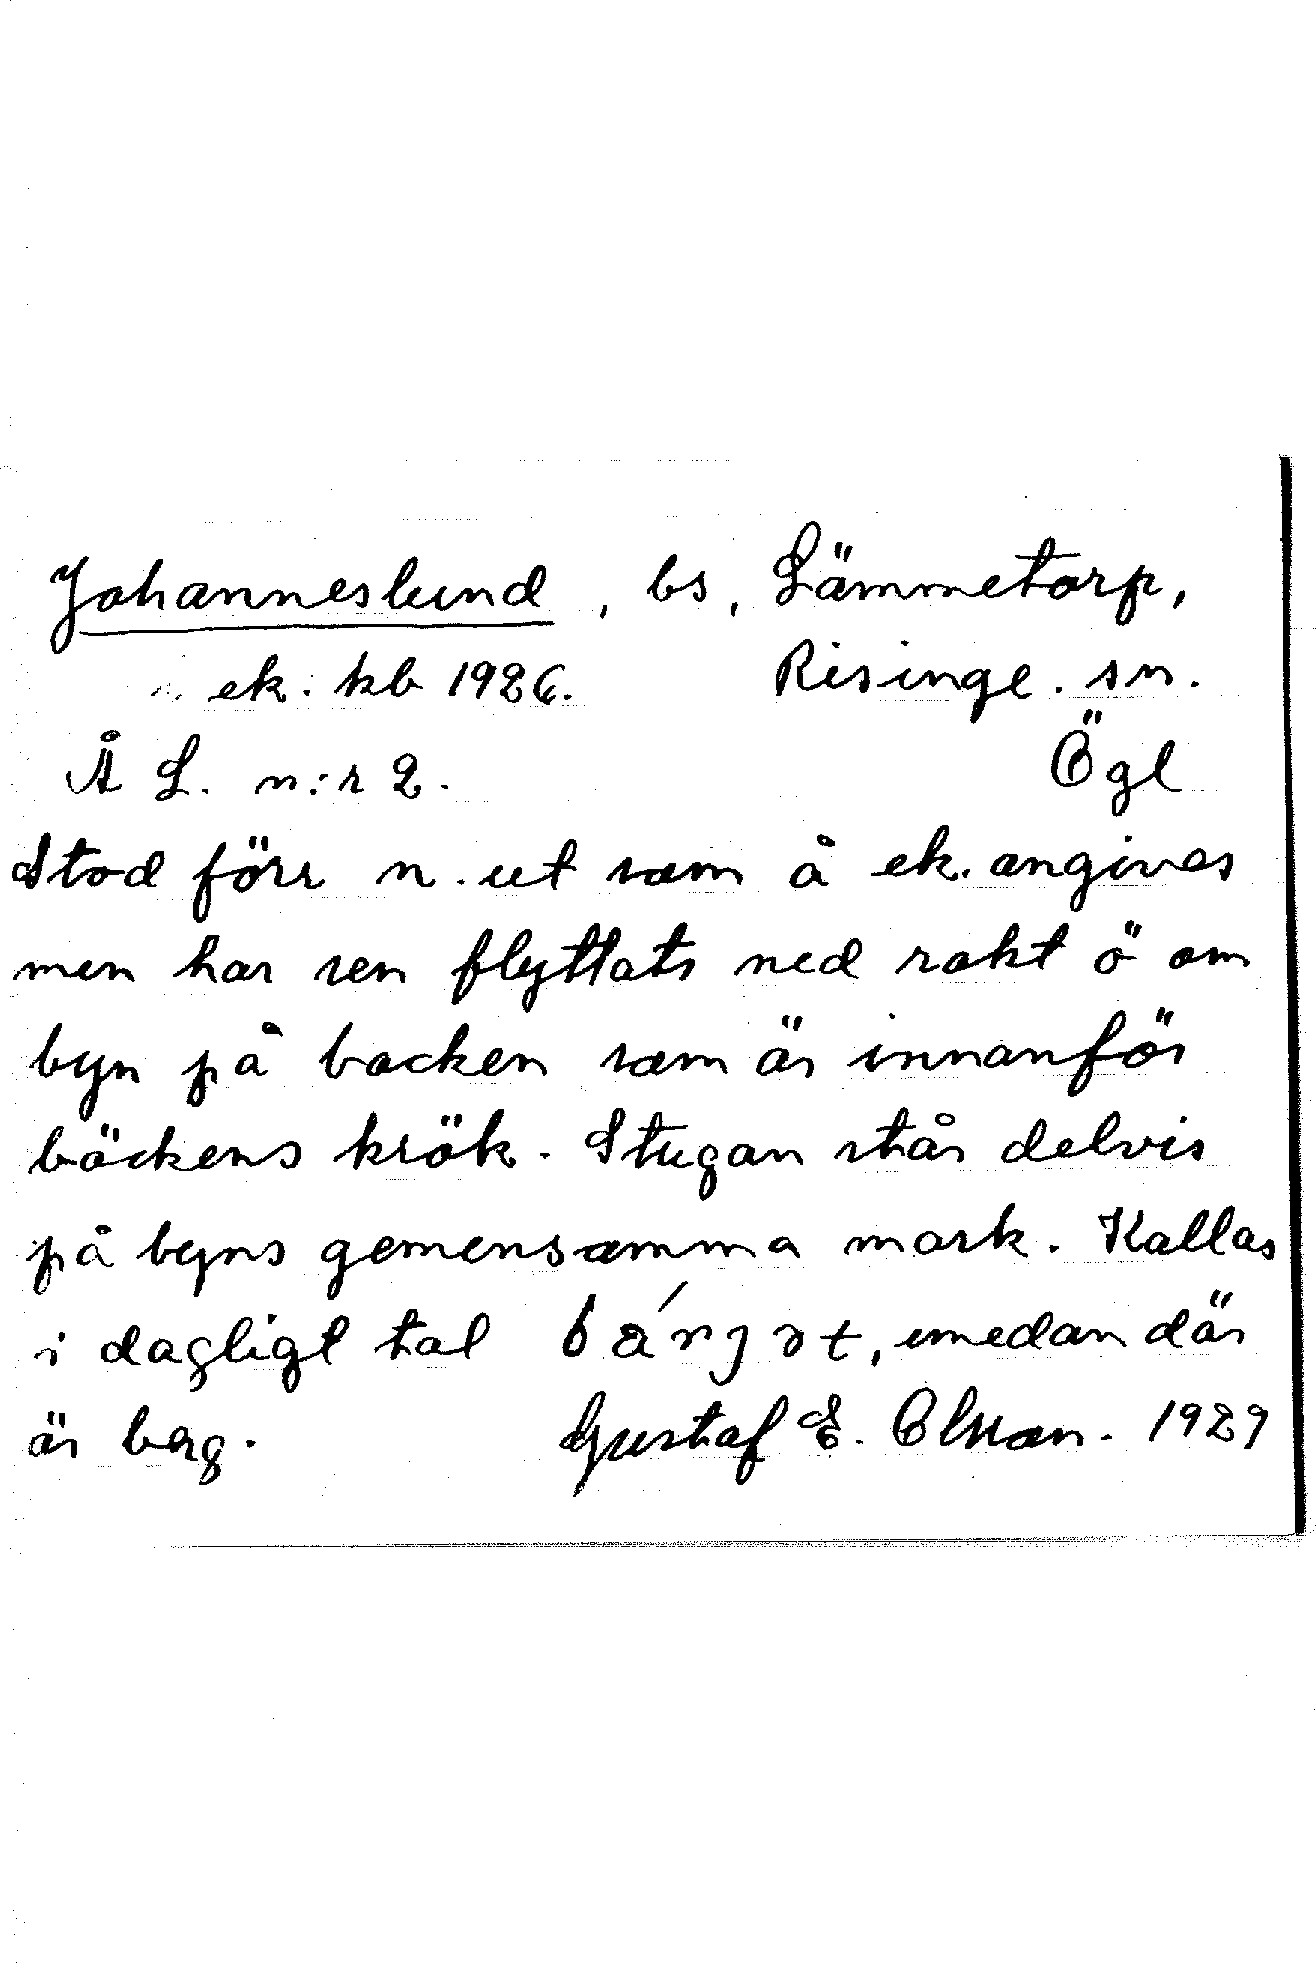 Johanneslund, bs, Lämmetorp,
ek. kb 1926. Risinge. sn.
Å L. n:r 2. Ögl
Stod förr n. ut som å ek. angives
men har sen flyttats ned rakt ö om
byn på backen som är innanför
bäckens krök. Stugan står delvis
på byns gemensamma mark. Kallas
i dagligt tal , emedan där
är berg. Gustaf E. Olsson. 1929